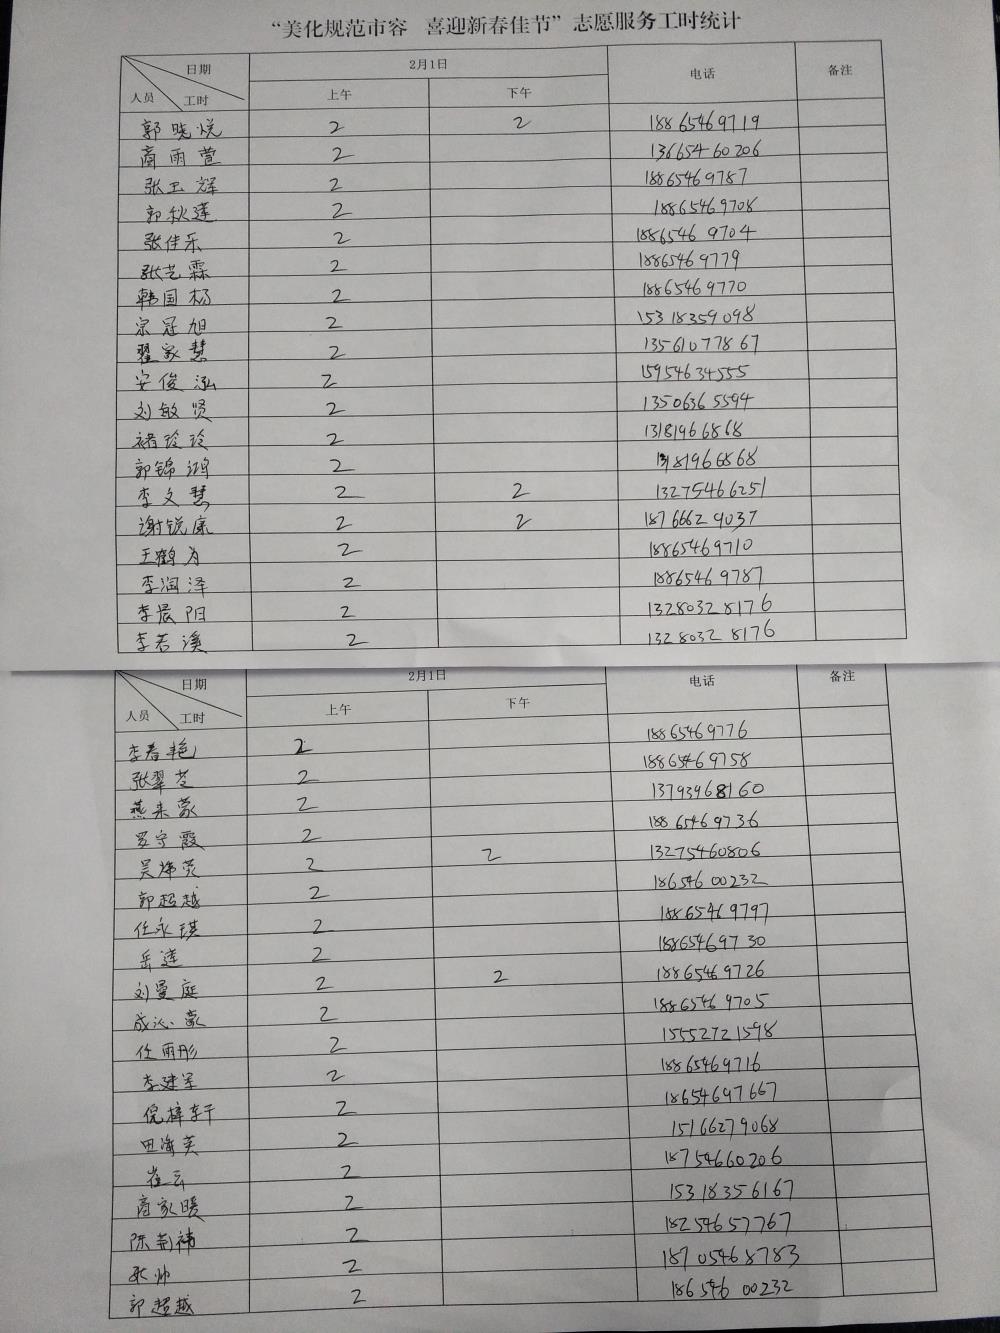 “美化规范市容 喜迎新春佳节”志愿服务工时统计
日期 2月1日 电话 备注
人员 工时 上午 下午
郭晓悦 2 2 18865469719
商雨萱 2 13665460206
张卫辉 2 18865469787
郭秋莲 2 18865469708
张佳乐 2 18865469704
张艺霖 2 18865469779
韩国杨 2 18865469770
宗冠旭 2 15318359098
翟家慧 2 13561077867
安俊泓 2 15954634555
刘敏贤 2 13506365594
褚玲玲 2 13181966868
郭锦鸿 2 13181966868
李文慧 2 2 13275466251
谢锐廉 2 2 18766629037
王鹤为 2 18865469710
李润泽 2 18865469787
李晨阳 2 13280328176
李若溪 2 13280328176
日期 2月1日 电话 备注
人员 工时 上午 下午
李春艳 2 18865469776
张翠芝 2 18865469758
燕来蒙 2 13793968160
罗宁霞 2 18865469736
吴炜荧 2 2 13275460806
郭超越 2 18654600232
任永琪 2 18865469797
岳莲 2 18865469730
刘曼庭 2 2 18865469726
成沁蒙 2 18865469705
任雨彤 2 15552721598
李建军 2 18865469716
倪梓轩 2 18654697667
田海英 2 15166279068
崔云 2 18754660206
商家暖 2 15318356167
陈荆祎 2 18254657767
耿帅 2 18705468783
郭超越 2 18654600232